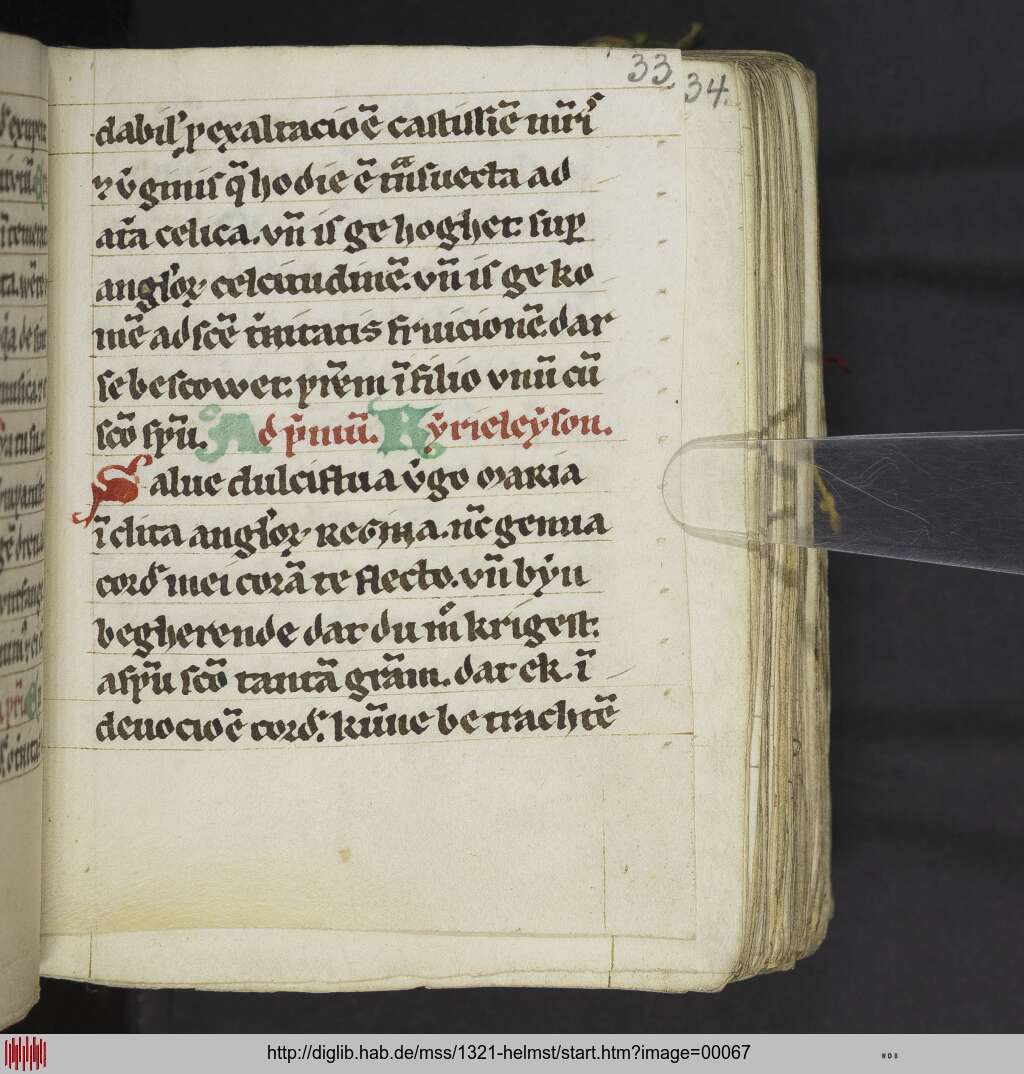 33. 34.
dabil' p exaltacioē castissiē mr̄is
⁊ v̇ginis q̄ hodie ē tͣnsuecta ad
atͥa celica. vn̄ is ge hoghet. sup
anglo'ꝝ celcitudinē. vn̄ is ge ko
mē ad scē tͥnitatis fruicionē dar
se bescowet. pr̄em ī filio vnū cū
scō spū. Ad pͥmū. Kẏrieleẏson.
Salue dulciflua v̇go maria
īclita anglo'ꝝ regina. nc̄ genua
cord' mei corā te flecto. vn̄ bẏn
begherende dat du mͦ krigest.
a spū scō tantā grām. dat ek. ī
deuocioē cord'. kūne be trachtē
http://diglib.hab.de/mss/1321-helmst/start.htm?image=00067